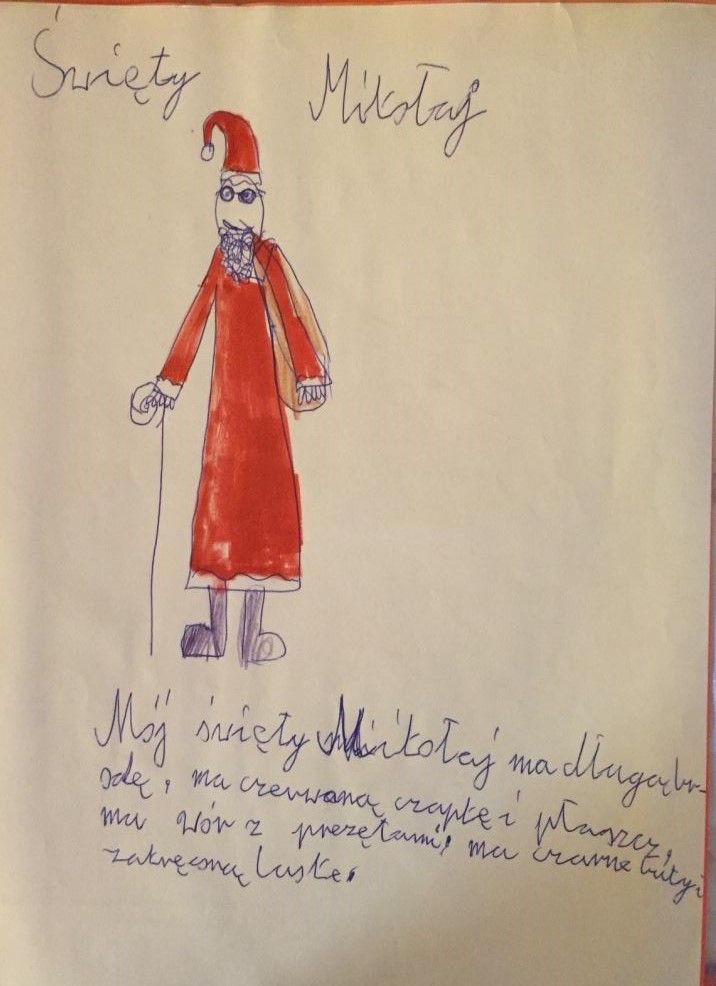 Święty Mikołaj
Mój święty Mikołaj ma długą br-
odę, ma czerwoną czapkę i płaszcz,
ma wór z prezętami, ma czarne buty i
zakręconą laskę.